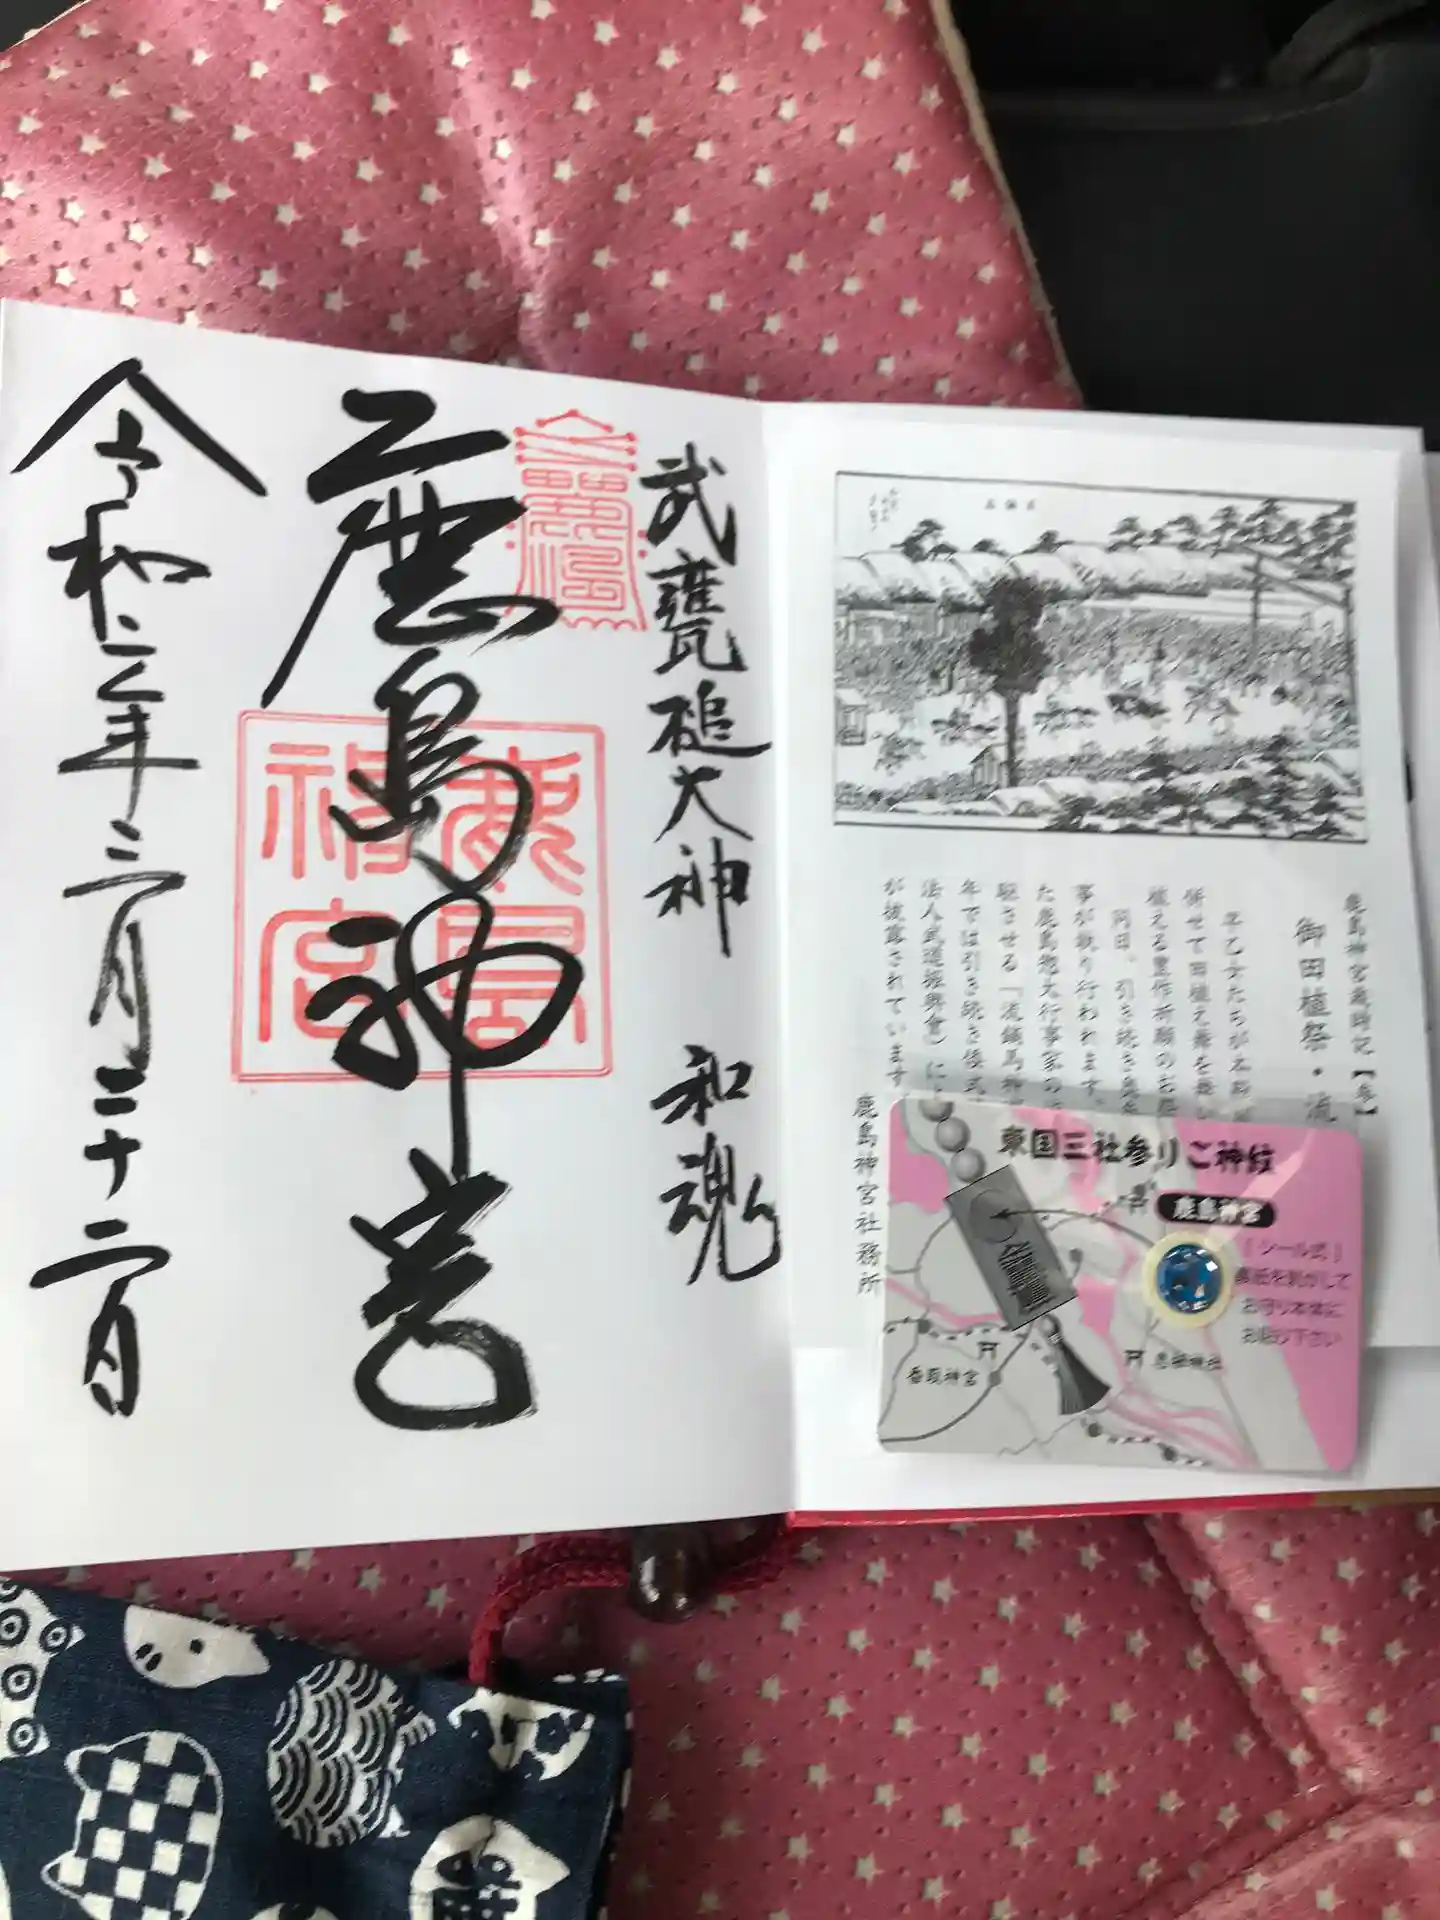 武甕槌大神 和魂
鹿島神宮
鹿島神宮
令和三年三月二十二日
鹿島神宮歳時記【春】
御田植祭・流
早乙女たちが本殿
併せて田植え舞を
植える豊作祈願のお
同日、引き続き
事が執り行われます。
た鹿島惣大行事家の
駆させる「流鏑馬神
年では引き続き
法人武道振興會）に
が披露されています。
鹿島神宮社務所
東国三社参りご神紋
鹿島神宮
[シール式]
裏紙を剥がして
お守り本体に
お貼り下さい
香取神宮
息栖神社